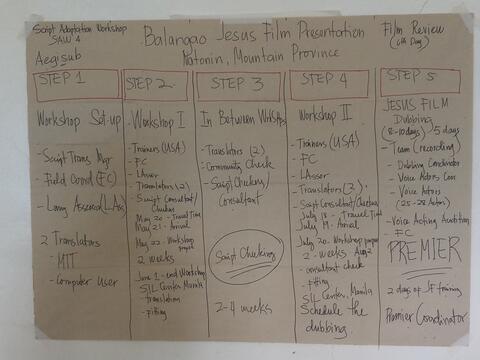 Script Adaptation Workshop
SAW 4
Aegisub
Balangao Jesus Film Presentation
Natonin, Mountain Province
Film Review
STEP 1
Workshop Set-up
- Script Trans. Mgr
- Field Coord (FC)
2 Translators
- MTT
- Computer User
STEP 2
Workshop I
- Trainers (USA)
- FC
- LAsser
- Translators (2)
- Script Consultant/
May 20 - Travel Time
May 21 - Arrival
May 22 - Workshop
2 weeks
June 1 - end Workshop
SIL Center Manila
- translation
- fitting
STEP 3
In Between
- Translators (2)
- Community Check
- Script Checkers/
Consultant
Script Checking
2-4 weeks
STEP 4
Workshop II
- Trainers (USA)
- FC
- LAsser
- Translators (3)
- Script Consultant/
July 18 - Travel Time
July 19 - Arrival
July 20 - Workshop
2 weeks Aug 2
- consultant check
- fitting
SIL Center, Manila
Schedule the
dubbing
STEP 5
JESUS FILM
Dubbing
(8-10 days) 5 days
- Team (recording)
- Dubbing Coordinator
- Voice Actors Coor
- Voice Actors
(25-28 Actors)
- Voice Acting Audition
- FC
PREMIER
2 days of JF training
Premier Coordinator